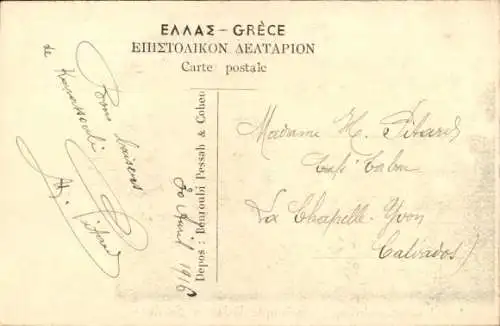 ΕΛΛΑΣ – GRÈCE
ΕΠΙΣΤΟΛΙΚΟΝ ΔΕΛΤΑΡΙΟΝ
Carte postale
Bons baisers
de
H. Pitard
30 Avril 1916
Depos: Benroubi Pessah & Cohen
Madame H. Pitard
La Chapelle-Yvon
Calvados